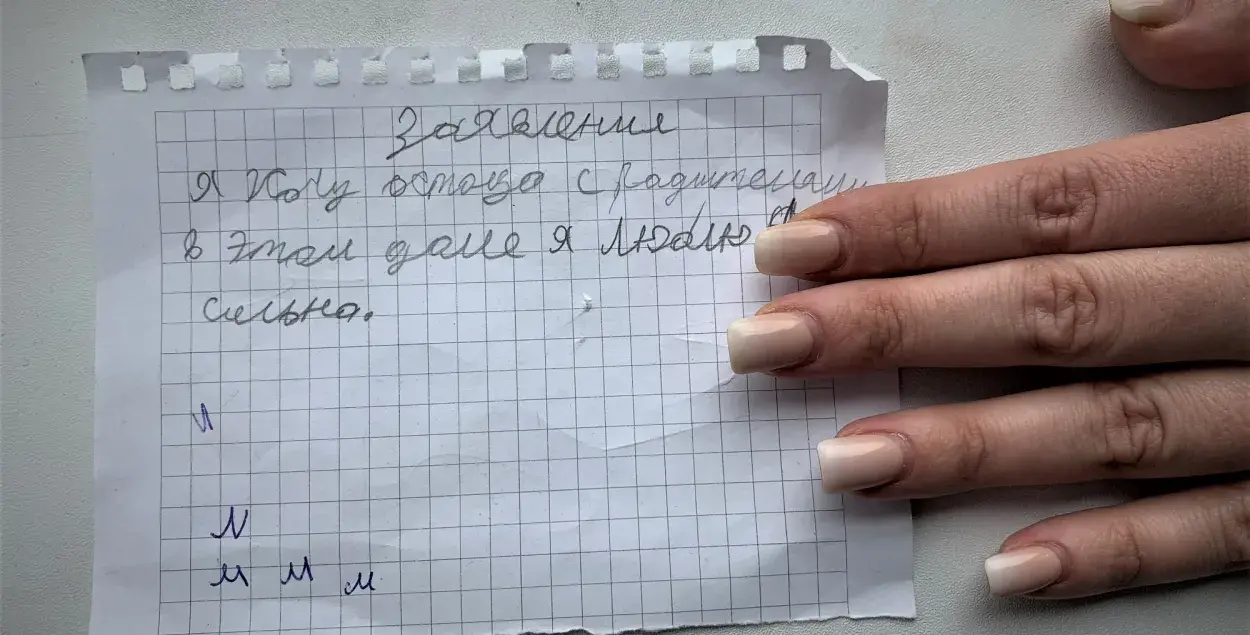 Заявления
я хочу остаца с радителями
в этом доме я люблю
сильно.
и
N
м м м